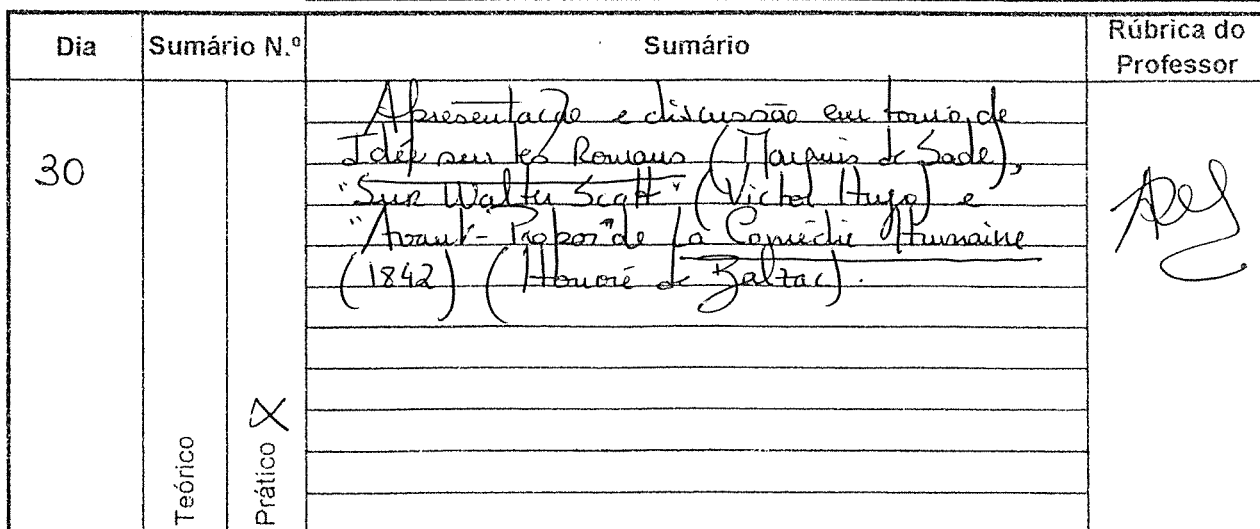 Dia
Sumário N.º
Sumário
Rúbrica do
Professor
30
Apresentação e discussão em torno de
Idée sur les Romans (Marquis de Sade),
"Sur Walter Scott" (Victor Hugo) e
"Avant-Propos" de La Comédie Humaine
(1842) (Honoré de Balzac).
Teórico
Prático X